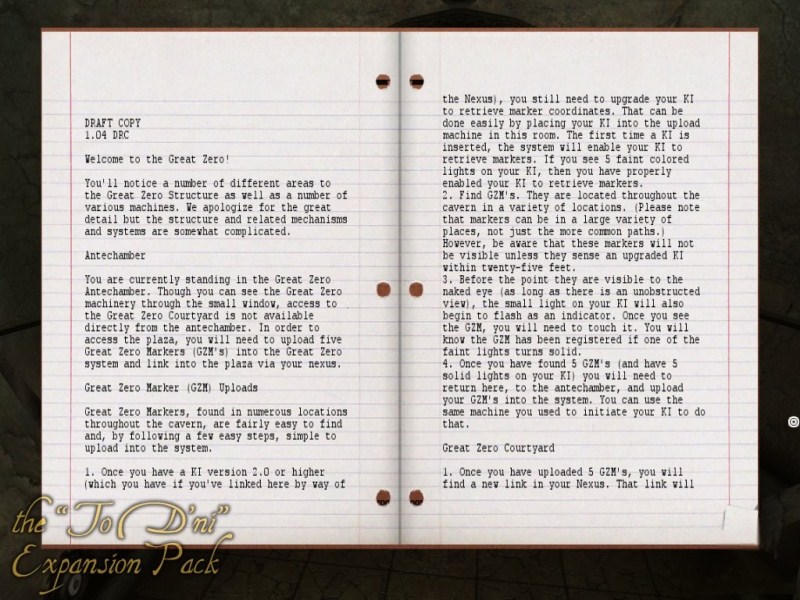 DRAFT COPY
1.04 DRC
Welcome to the Great Zero!
You'll notice a number of different areas to
the Great Zero Structure as well as a number of
various machines. We apologize for the great
detail but the structure and related mechanisms
and systems are somewhat complicated.
Antechamber
You are currently standing in the Great Zero
Antechamber. Though you can see the Great Zero
machinery through the small window, access to
the Great Zero Courtyard is not available
directly from the antechamber. In order to
access the plaza, you will need to upload five
Great Zero Markers (GZM's) into the Great Zero
system and link into the plaza via your nexus.
Great Zero Marker (GZM) Uploads
Great Zero Markers, found in numerous locations
throughout the cavern, are fairly easy to find
and, by following a few easy steps, simple to
upload into the system.
1. Once you have a KI version 2.0 or higher
(which you have if you've linked here by way of
the Nexus), you still need to upgrade your KI
to retrieve marker coordinates. That can be
done easily by placing your KI into the upload
machine in this room. The first time a KI is
inserted, the system will enable your KI to
retrieve markers. If you see 5 faint colored
lights on your KI, then you have properly
enabled your KI to retrieve markers.
2. Find GZM's. They are located throughout the
cavern in a variety of locations. (Please note
that markers can be in a large variety of
places, not just the more common paths.)
However, be aware that these markers will not
be visible unless they sense an upgraded KI
within twenty-five feet.
3. Before the point they are visible to the
naked eye (as long as there is an unobstructed
view), the small light on your KI will also
begin to flash as an indicator. Once you see
the GZM, you will need to touch it. You will
know the GZM has been registered if one of the
faint lights turns solid.
4. Once you have found 5 GZM's (and have 5
solid lights on your KI) you will need to
return here, to the antechamber, and upload
your GZM's into the system. You can use the
same machine you used to initiate your KI to do
that.
Great Zero Courtyard
1. Once you have uploaded 5 GZM's, you will
find a new link in your Nexus. That link will
the "To D'ni"
Expansion Pack